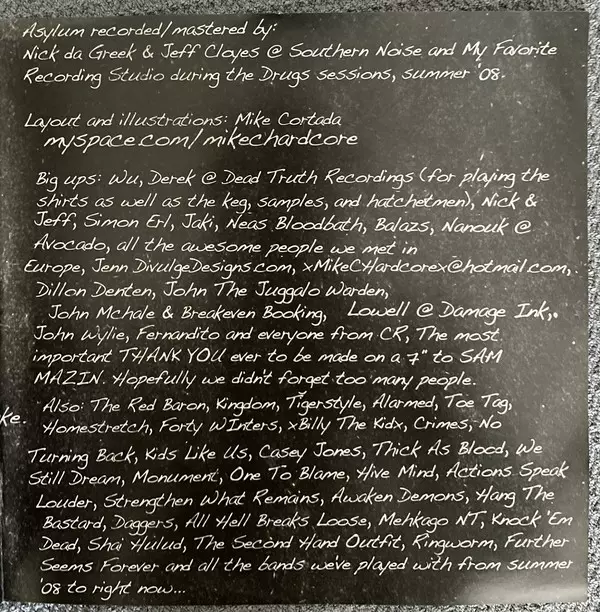 Asylum recorded/mastered by:
Nick da Greek & Jeff Cloyes @ Southern Noise and My Favorite
Recording Studio during the Drugs sessions, summer '08.
Layout and illustrations: Mike Cortada
myspace.com/mikechardcore
Big ups: Wu, Derek @ Dead Truth Recordings (for playing the
shirts as well as the keg, samples, and hatchetmen), Nick &
Jeff, Simon Erl, Jaki, Neas Bloodbath, Balazs, Nanouk @
Avocado, all the awesome people we met in
Europe, Jenn DivulgeDesigns.com, xMikeCHardcorex@hotmail.com,
Dillon Denten, John The Juggalo Warden,
John Mchale & Breakeven Booking, Lowell @ Damage Ink,
John Wylie, Fernandito and everyone from CR, The most
important THANK YOU ever to be made on a 7" to SAM
MAZIN. Hopefully we didn't forget too many people.
ke. Also: The Red Baron, Kingdom, Tigerstyle, Alarmed, Toe Tag,
Homestretch, Forty WInters, xBilly The Kidx, Crimes, No
Turning Back, Kids Like Us, Casey Jones, Thick As Blood, We
Still Dream, Monument, One To Blame, Hive Mind, Actions Speak
Louder, Strengthen What Remains, Awaken Demons, Hang The
Bastard, Daggers, All Hell Breaks Loose, Mehkago NT, Knock 'Em
Dead, Shai Hulud, The Second Hand Outfit, Ringworm, Further
Seems Forever and all the bands we've played with from summer
'08 to right now...